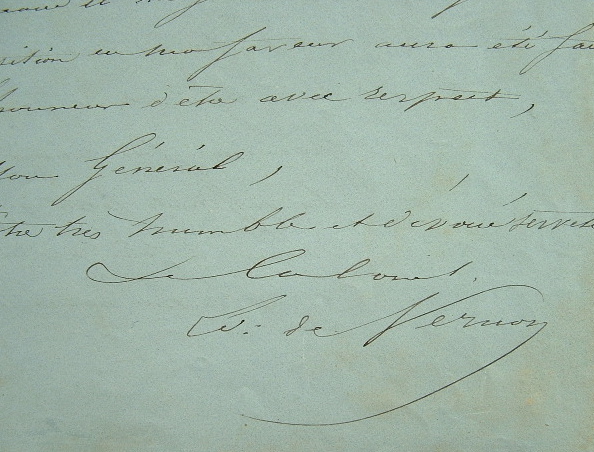 sition en ma faveur aura été fai
honneur d'être avec respect,
Mon Général,
tre très humble et dévoué servite
Le Colonel.
de Vernon